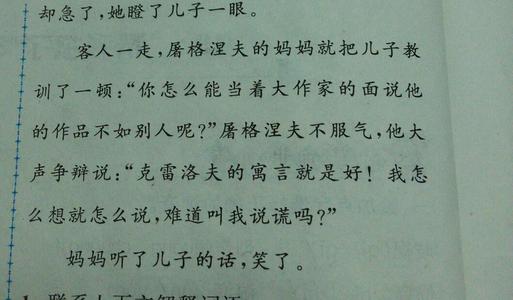 却急了,她瞪了儿子一眼。
客人一走,屠格涅夫的妈妈就把儿子教
训了一顿:“你怎么能当着大作家的面说他
的作品不如别人呢?”屠格涅夫不服气,他大
声争辩说:“克雷洛夫的寓言就是好!我怎
么想就怎么说,难道叫我说谎吗?”
妈妈听了儿子的话,笑了。